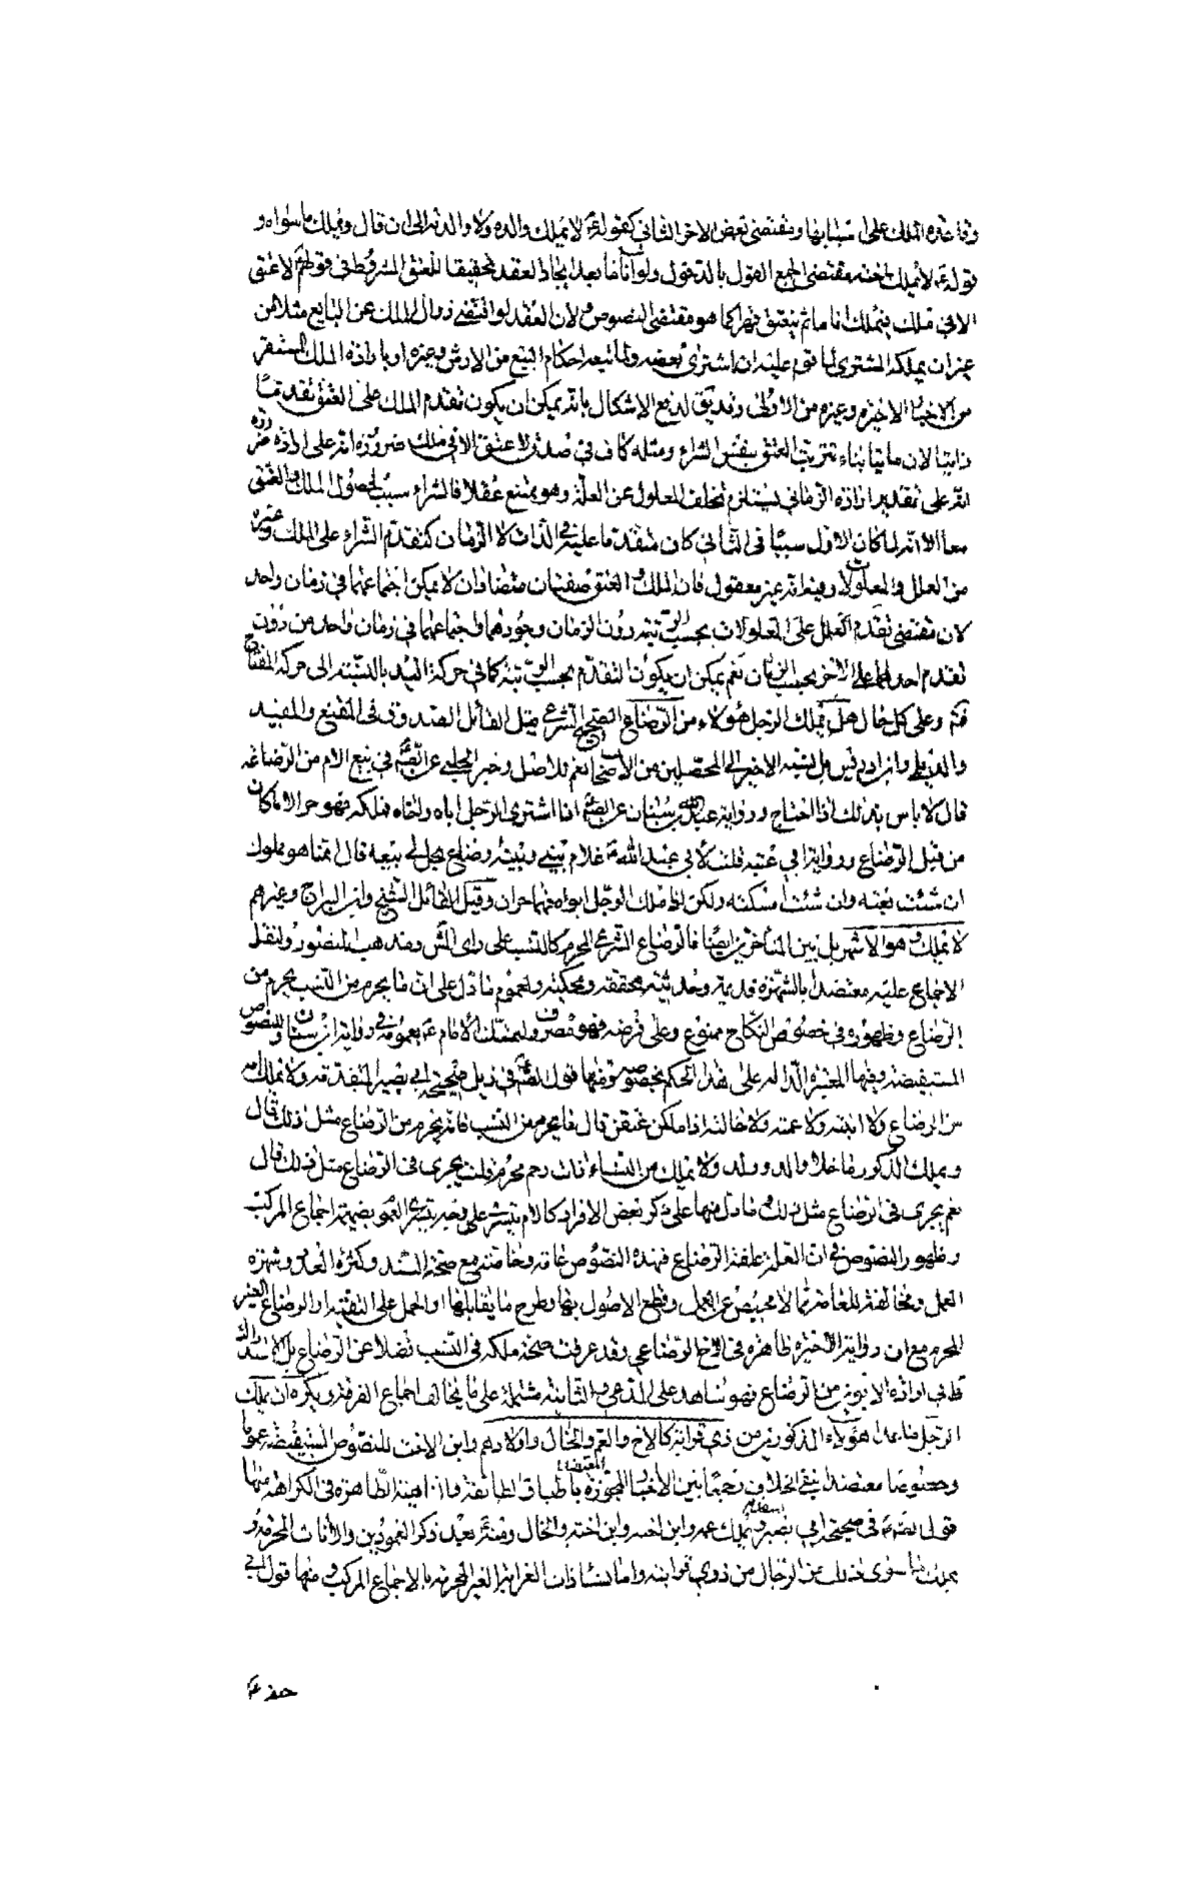 وقاعدة الملك على اسبابها ومقتضى بعض الاخر الثاني كقوله ع لا يملك والده ولا والدته الى ان قال ويملك ما سواه و
قوله ع لا يملك اخته مقتضى الجمع القول بالدخول ولو انا ما بعد ايجاد العقد تحقيقا للعتق المشروط في قولهم لا عتق
الا في ملك فيملك انا ما ثم ينعتق قهرا كما هو مقتضى النصوص ولان العقد لو اقتضى زوال الملك عن البايع مثلا من
غير ان يملكه المشتري لما قوم عليه ان اشترى بعضه ولما تبعه احكام البيع من الارش وغيره او بارادة الملك المستقر
من الاخبار الاخيرة وغيره من الاولى وقد يق لدفع الاشكال بانه يمكن ان يكون تقدم الملك على العتق تقدما
ذاتيا لا زمانيا بناء ترتب العتق بنفس الشراء ومثله كاف في صدق لا عتق الا في ملك ضرورة انه على ارادة
انه على تقدير ارادة الزماني يستلزم تخلف المعلول عن العلة وهو ممتنع عقلا فالشراء سبب لحصول الملك والعتق
معا الا انه لما كان الاول سببا في الثاني كان متقدما عليه في الذات لا الزمان كتقدم الشراء على الملك وغيره
من العلل والمعلولات وفيه انه غير معقول فان الملك والعتق صفتان متضادتان لا يمكن اجتماعهما في زمان واحد
لان مقتضى تقدم العلل على المعلولات بحسب الرتبة دون الزمان وجودهما واجتماعهما في زمان واحد من دون
تقدم احدهما على الاخر بحسب الزمان نعم يمكن ان يكون التقدم بحسب الرتبة كما في حركة اليد بالنسبة الى حركة المفتاح
فتم وعلى كل حال هل يملك الرجل هؤلاء من الرضاع الصحيح الشرعي قيل القائل الصدوق في المقنع والمفيد
والديلمي وابن ادريس بل نسبه الاخير الى المحصلين من الاصحاب نعم للاصل وخبر الحلبي عن الص ع في بيع الام من الرضاعة
قال لا باس بذلك اذا احتاج ورواية عبد الله بن سنان عن الص ع اذا اشترى الرجل اباه واخاه فملكه فهو حر الا ما كان
من قبل الرضاع ورواية ابي عتبة قلت لابي عبد الله ع غلام بيني وبينه رضاع يحل لي بيعه قال انما هو مملوك
ان شئت بعته وان شئت امسكته ولكن اذا ملك الرجل ابواه فهما حران وقيل القائل الشيخ وابن البراج وغيرهم
لا يملك وهو الاشهر بل بين المتاخرين ايضا فالرضاع الشرعي المحرم كالنسب على راى المش ومذهب المنصور ولنقل
الاجماع عليه معتضدا بالشهرة قديمة وحديثة محققة ومحكية ولعموم ما دل على ان ما يحرم من النسب يحرم من
الرضاع وظهوره في خصوص النكاح ممنوع وعلى فرضه فهو مصروف ولتمسك الامام ع بعمومه في رواية ابن سنان وللنصوص
المستفيضة وفيها المعتبرة الدالة على هذا الحكم بخصوصه منها قول الص ع في ذيل صحيحة ابي بصير المتقدمة ولا يملك امه
من الرضاع ولا ابنته ولا عمته ولا خالته اذا ملكن عتقن قال ما يحرم من النسب فانه يحرم من الرضاع مثل ذلك قال
ويملك الذكور ما خلا والد وولد ولا يملك من النساء ذات رحم محرم قلت يجرى في الرضاع مثل ذلك قال
نعم يجرى في الرضاع مثل ذلك وما دل منها على ذكر بعض الافراد كالام بضميمة اجماع المركب
وظهور النصوص في ان العلة علقة الرضاع فهذه النصوص عامة وخاصة مع صحة السند وكثرة العدد وشهرة
العمل ومخالفة للعامة مما لا محيص عن العمل وقطع الاصول بها وطرح ما يقابلها او الحمل على التقية او الرضاع الغير
المحرم مع ان رواية الاخيرة ظاهرة في الاخ الرضاعي وقد عرفت صحة ملكه في النسب فضلا عن الرضاع بل
ارادة الابوين من الرضاع فهو شاهد على المدعى والثانية مشتملة على ما يخالف اجماع الفرقة ويكره ان يملك
الرجل ما عدا هؤلاء المذكورين من ذي قرابة كالاخ والعم والخال واولادهم وابن الاخت للنصوص المستفيضة عموما
وخصوصا معتضدا بنفي الخلاف جمعا بين الاخبار المجوزة المعتضدة باطباق الطائفة والظاهرة في الكراهة منها
قول الص ع في صحيحة ابي بصير ويملك عمه وابن اخيه وابن اخته والخال وقوله ع بعد ذكر العمودين والاناث المحرمة و
يملك ما سوى ذلك من الرجال من ذوي قرابته واما النساء ذات القرابة الغير المحرمة بالاجماع المركب ومنها قول ابي